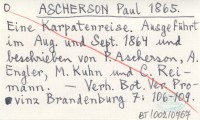 O ASCHERSON Paul 1865.
Eine Karpatenreise. Ausgeführt
im Aug. und Sept. 1864 und
beschrieben von P. Ascherson, A.
Engler, M. Kuhn und C. Rei-
mann. — Verh. Bot. Ver Pro
vinz Brandenburg 7: 106-109.
BT/002/0467